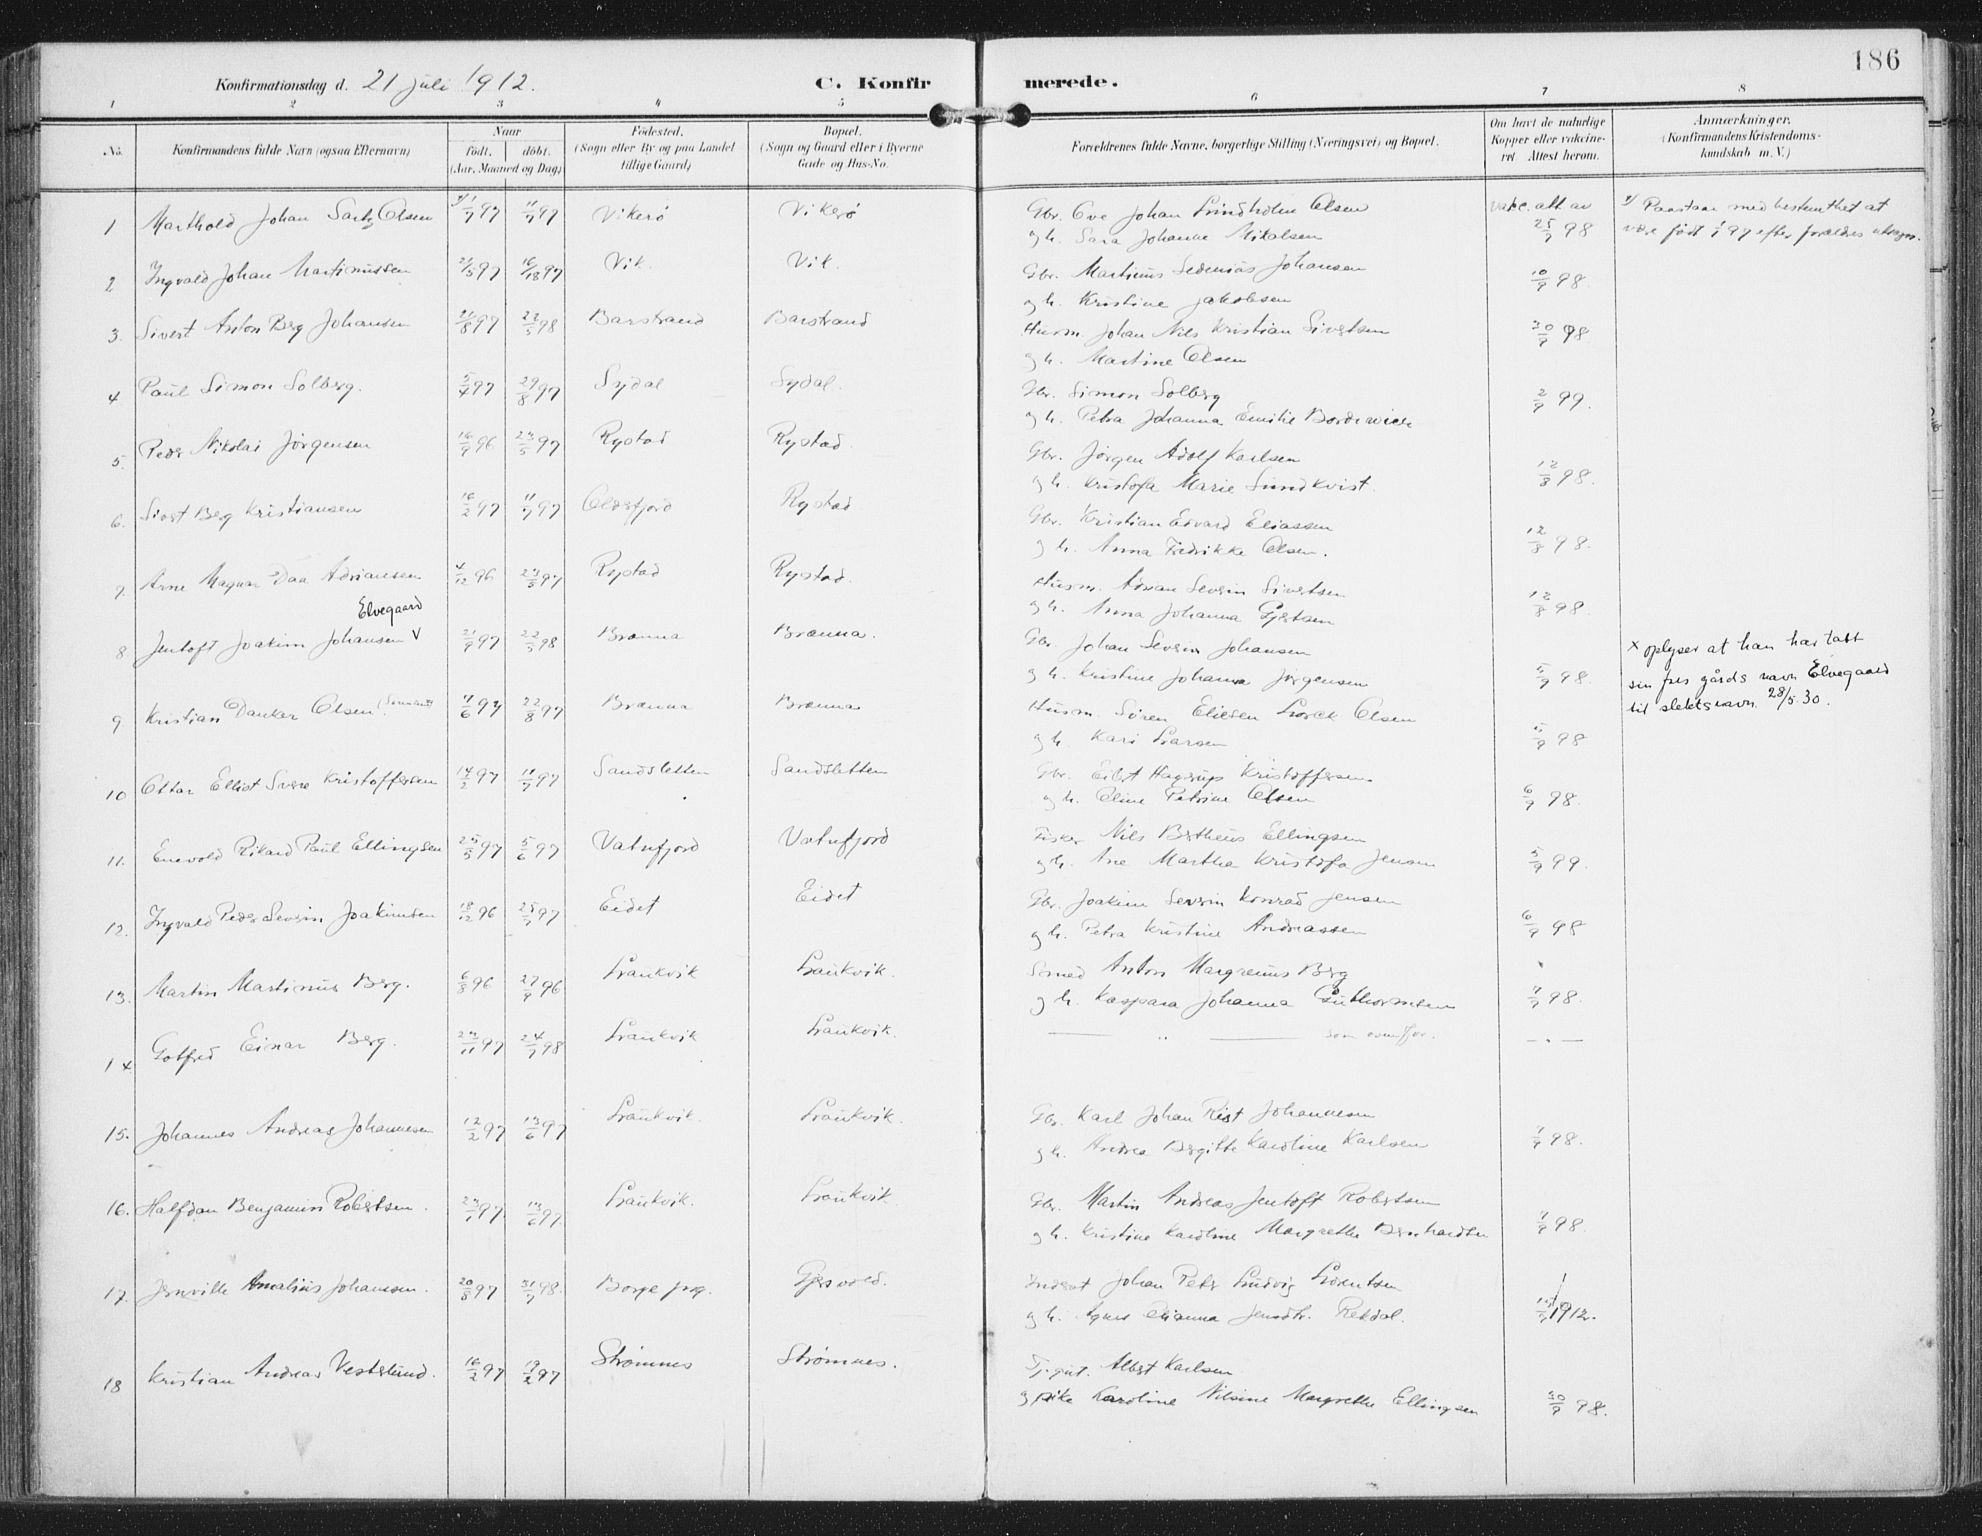 186
Konfirmationsdag d. 21 juli 1912.
C. Konfirmerede.
1 2 3 4 5 6 7 8
No. Konfirmandens fulde Navn (ogsaa Efternavn) Naar født, døbt. (Aar, Maaned og Dag) Fødested. (Sogn eller By og paa Landet tillige Gaard) Bopæl. (Sogn og Gaard eller i Byerne Gade og Hus-No. Forældrenes fulde Navne, borgerlige Stilling (Næringsvei) og Bopæl. Om havt de naturlige Kopper eller vaccineret Attest herom. Anmærkninger. (Konfirmandens Kristendomskundskab m. V.)
1 Marthold Johan Olsen 97 11/7 97 Vikerø Vikerø Gbr. Ove Johan Lindholm Olsen vacc. att av
g h. Sara Johanne Nikolsen 25/9 98
x) Paastaar med bestemthet at
være født 97 efter forældres utsagn.
2 Ingvald Johan Martinussen 21/5 97 97 Vik. Vik. Gbr. Martinus Sedenius Johansen
g h. Kristine Jakobsen 10/9 98
3. Sivert Anton Berg Johansen 21/8 97 22/5 98 Barstrand Barstrand Husm. Johan Nils Kristian Sivertsen
g h. Martine Olsen 30/9 98
4 Paul Simon Solberg. 5/4 97 29/8 97 Sydal Sydal. Gbr. Simon Solberg
g h. Petra Johanna Emilie Bordewick 2/9 99.
5. Peder Nikolai Jørgensen 16/9 96 23/5 97 Rystad Rystad. Gbr. Jørgen Adolf Karlsen
g h. Kristofa Marie Sundkvist. 12/8 98.
6. Sivert Berg Kristiansen 16/2 97 11/7 97 Oldersfjord Rystad Gbr. Kristian Edvard Eliassen
g h. Anna Fredrikke Olsen. 12/8 98.
7. Arne Magnar Daa Adriansen 4/12 96 23/5 97 Rystad Rystad. Husm. Adrian Severin Sivertsen
g h. Anna Johanna Gjertsen 12/8 98.
Elvegaard
8 Jentoft Joakim Johansen v 21/9 97 22/5 98 Brænna Brænna. Gbr. Johan Severin Johansen
g h. Kristine Johanna Jørgensen 5/9 98.
x oplyser at han har tatt
sin fars gårds navn Elvegaard
til slektsnavn 28/5.30.
9 Kristian Dankar Olsen 7/6 97 22/8 97 Brænna Brænna Husm. Søren Eliesen Lorck Olsen
g h. Kari Larsen 5/9 98
10 Ottar Elliot Sverre Kristoffersen 14/2 97 11/7 97 Sandsletten Sandsletten Gbr. Eibert Hagerup Kristoffersen
g h. Eline Petrine Olsen 6/9 98.
11. Enevold Rikard Paul Ellingsen 25/5 97 5/6 97 Vatnfjord Vatnfjord Fisker Nils Bertheus Ellingsen
g h. Ane Martha Kristofa Jensen 5/9 99.
12. Ingvald Peder Severin Joakimsen 18/12 96 25/7 97 Eidet Eidet Gbr. Joakim Severin Konrad Jensen
g h. Petra Kristine Andreassen 6/9 98
13. Martin Martinus Berg. 6/8 96 27/9 96 Laukvik Laukvik. Smed Anton Margrenus Berg
g h. Kaspara Johanna Guthormsen 7/9 98.
14 Gotfred Einar Berg. 23/11 97 24/7 98 Laukvik Laukvik. — „ — som ovenfor. — „ —
15. Johannes Andreas Johannesen 12/2 97 13/6 97 Laukvik. Laukvik. Gbr. Karl Johan Rist Johannesen
g h. Andrea Bergitte Karoline Karlsen 7/9 98.
16. Halfdan Benjamin Robertsen. 97 13/6 97 Laukvik. Laukvik Gbr. Martin Andreas Jentoft Robertsen
g h. Kristine Karoline Margrethe Bernhardsen 7/9 98.
17. Jernville Amalius Johansen. 20/8 97 31/7 98. Borge prg. Gjersvold. Inderst Johan Peder Ludvig Lorentsen
g h. Agnes Elianna Jensdtr. Rekdal. 1912.
18 Kristian Andreas Vesterlund. 16/2 97 19/2 97 Strømnes Strømnes. Tj.gut. Albert Karlsen
g pike Karoline Nilsine Margrethe Ellingsen 30/9 98.